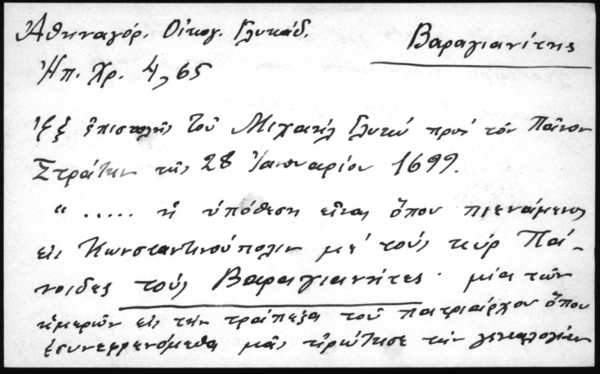 Ἀθηναγόρ. Οἰκογ. Γλυκάδ.
Βαραγιανίτης
Ἠπ. Χρ. 4, 65
Ἐξ ἐπιστολῆς τοῦ Μιχαὴλ Γλυκύ πρὸς τὸν Πᾶνον
Στράτην τῆς 28 Ἰανουαρίου 1699.
"..... ἡ ὑπόθεση εἶναι ὅπου πιενάμενος
εἰς Κωνσταντινούπολιν μὲ τοὺς κὺρ Παΐ-
νοιδες τοὺς Βαραγιανήτες· μίαι τῶν
ἡμερῶν εἰς τὴν τράπεζα τοῦ πατριάρχου ὅπου
ἐσυνεφρενόμεθα μᾶς ἠρώτησε τὴν γενεαλογίαν